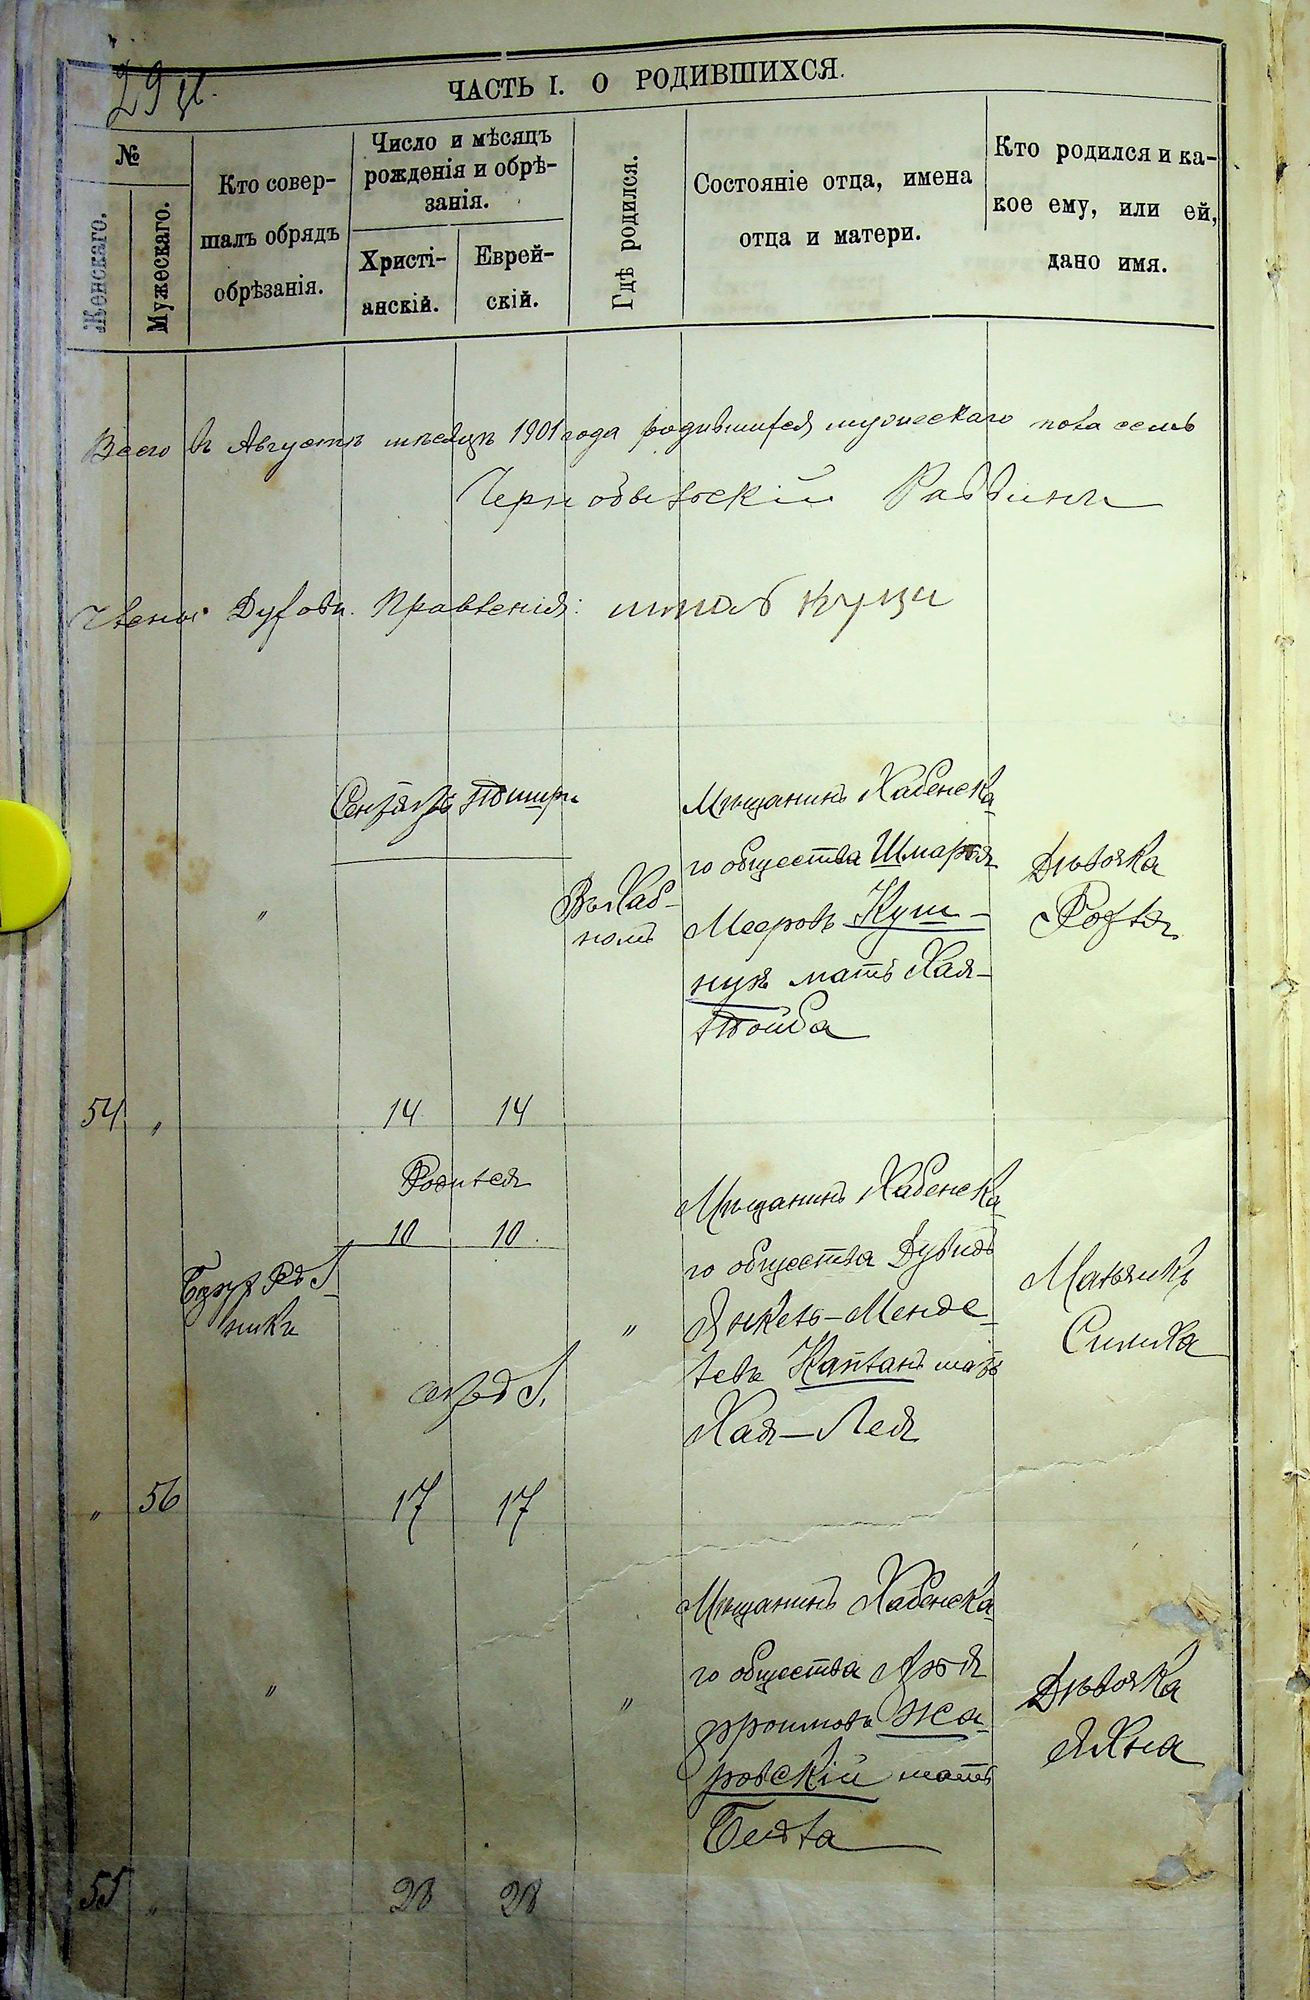 29
ЧАСТЬ I. О РОДИВШИХСЯ.
№
Женскаго.
Мужескаго.
Кто совер-
шалъ обрядъ
обрѣзанія.
Число и мѣсяцъ
рожденія и обрѣ-
занія.
Христі-
анскій.
Еврей-
скій.
Гдѣ родился.
Состояніе отца, имена
отца и матери.
Кто родился и ка-
кое ему, или ей,
дано имя.
Всего въ Августѣ мѣсяцѣ 1901 года родившихся мужескаго пола семь
Чернобыльскій Раввинъ
Члены Духовн. Правленія:
Сентябрь Тишри
54 " " 14 14
Въ Хаб-
номъ
Мѣщанинъ Хабенска
го общества Шмарья
Мееровъ Куш-
ниръ мать Хая-
Тойба
Дѣвочка
Рохля
Родился
10 10
17 17
" 56
"
Мѣщанинъ Хабенска
го общества Дувидъ
Янкель-Менде-
левъ Капланъ мать
Хая-Лея
Мальчикъ
Симха
55 " " 28 28
"
Мѣщанинъ Хабенска
го общества Арья
Фроимовъ Жа-
ровскій мать
Бейла
Дѣвочка
Яхна